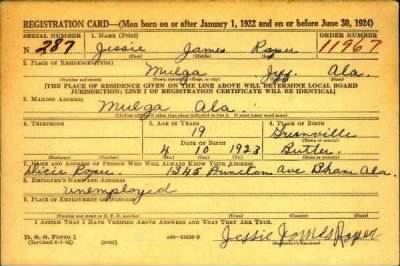 REGISTRATION CARD—(Men born on or after January 1, 1922 and on or before June 30, 1924)
SERIAL NUMBER 1. NAME (Print) ORDER NUMBER
N 287 Jessie James Roper 11967
(First) (Middle) (Last)
2. PLACE OF RESIDENCE (Print)
Mulga Jeff. Ala.
(Number and street) (Town, township, village, or city) (County) (State)
[THE PLACE OF RESIDENCE GIVEN ON THE LINE ABOVE WILL DETERMINE LOCAL BOARD
JURISDICTION; LINE 2 OF REGISTRATION CERTIFICATE WILL BE IDENTICAL]
3. MAILING ADDRESS
Mulga Ala.
4. TELEPHONE 5. AGE IN YEARS 6. PLACE OF BIRTH
19 Greenville
DATE OF BIRTH (Town or county)
4 10 1923 Butler
(Exchange) (Number) (Mo.) (Day) (Yr.) (State or country)
7. NAME AND ADDRESS OF PERSON WHO WILL ALWAYS KNOW YOUR ADDRESS
Roper. 1345 Ave Bham Ala.
8. EMPLOYER'S NAME AND ADDRESS
Unemployed
9. PLACE OF EMPLOYMENT OR BUSINESS
(Number and street or R. F. D. number) (Town) (County) (State)
I AFFIRM THAT I HAVE VERIFIED ABOVE ANSWERS AND THAT THEY ARE TRUE.
D. S. S. Form 1
(Revised 6-1-42) (over)
Jessie James Roper